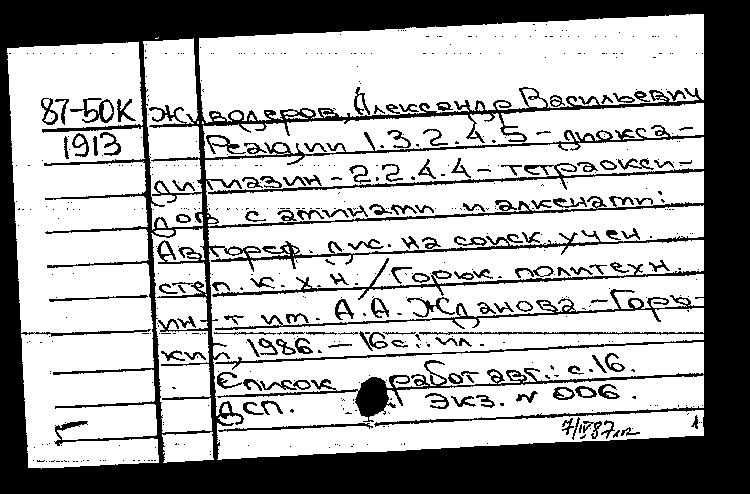 87-50К Живодеров, Александр Васильевич
1913 Реакции 1.3.2.4.5-диокса-
дитиазин-2.2.4.4-тетраокси-
дов с аминами и алкенами:
Автореф. дис. на соиск. учен.
степ. к. х. н. / Горьк. политехн.
ин-т им. А.А. Жданова. - Горь-
кий, 1986. - 16с.: ил.
Список работ авт.: с.16.
ДСП. Экз. № 006.
7/IV87